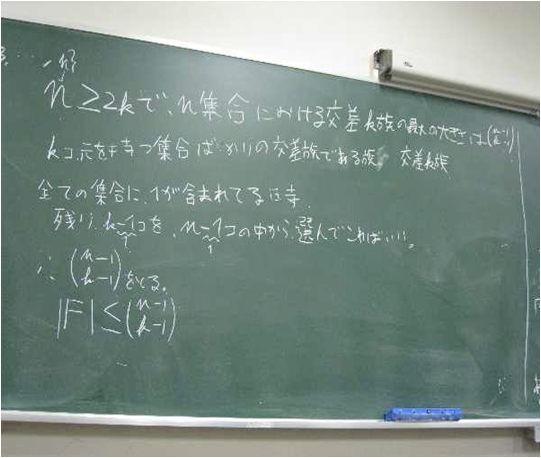 一般
n≧2kで、n集合における交差k族の最大の大きさは(n-1 k-1)
kコ元を持つ集合ばかりの交差族である族。 交差k族
全ての集合に、1が含まれてる時
残り、k-1コを、n-1コの中から、選んでこればいい。
∴ (n-1 k-1)をとる。
|F|≦(n-1 k-1)